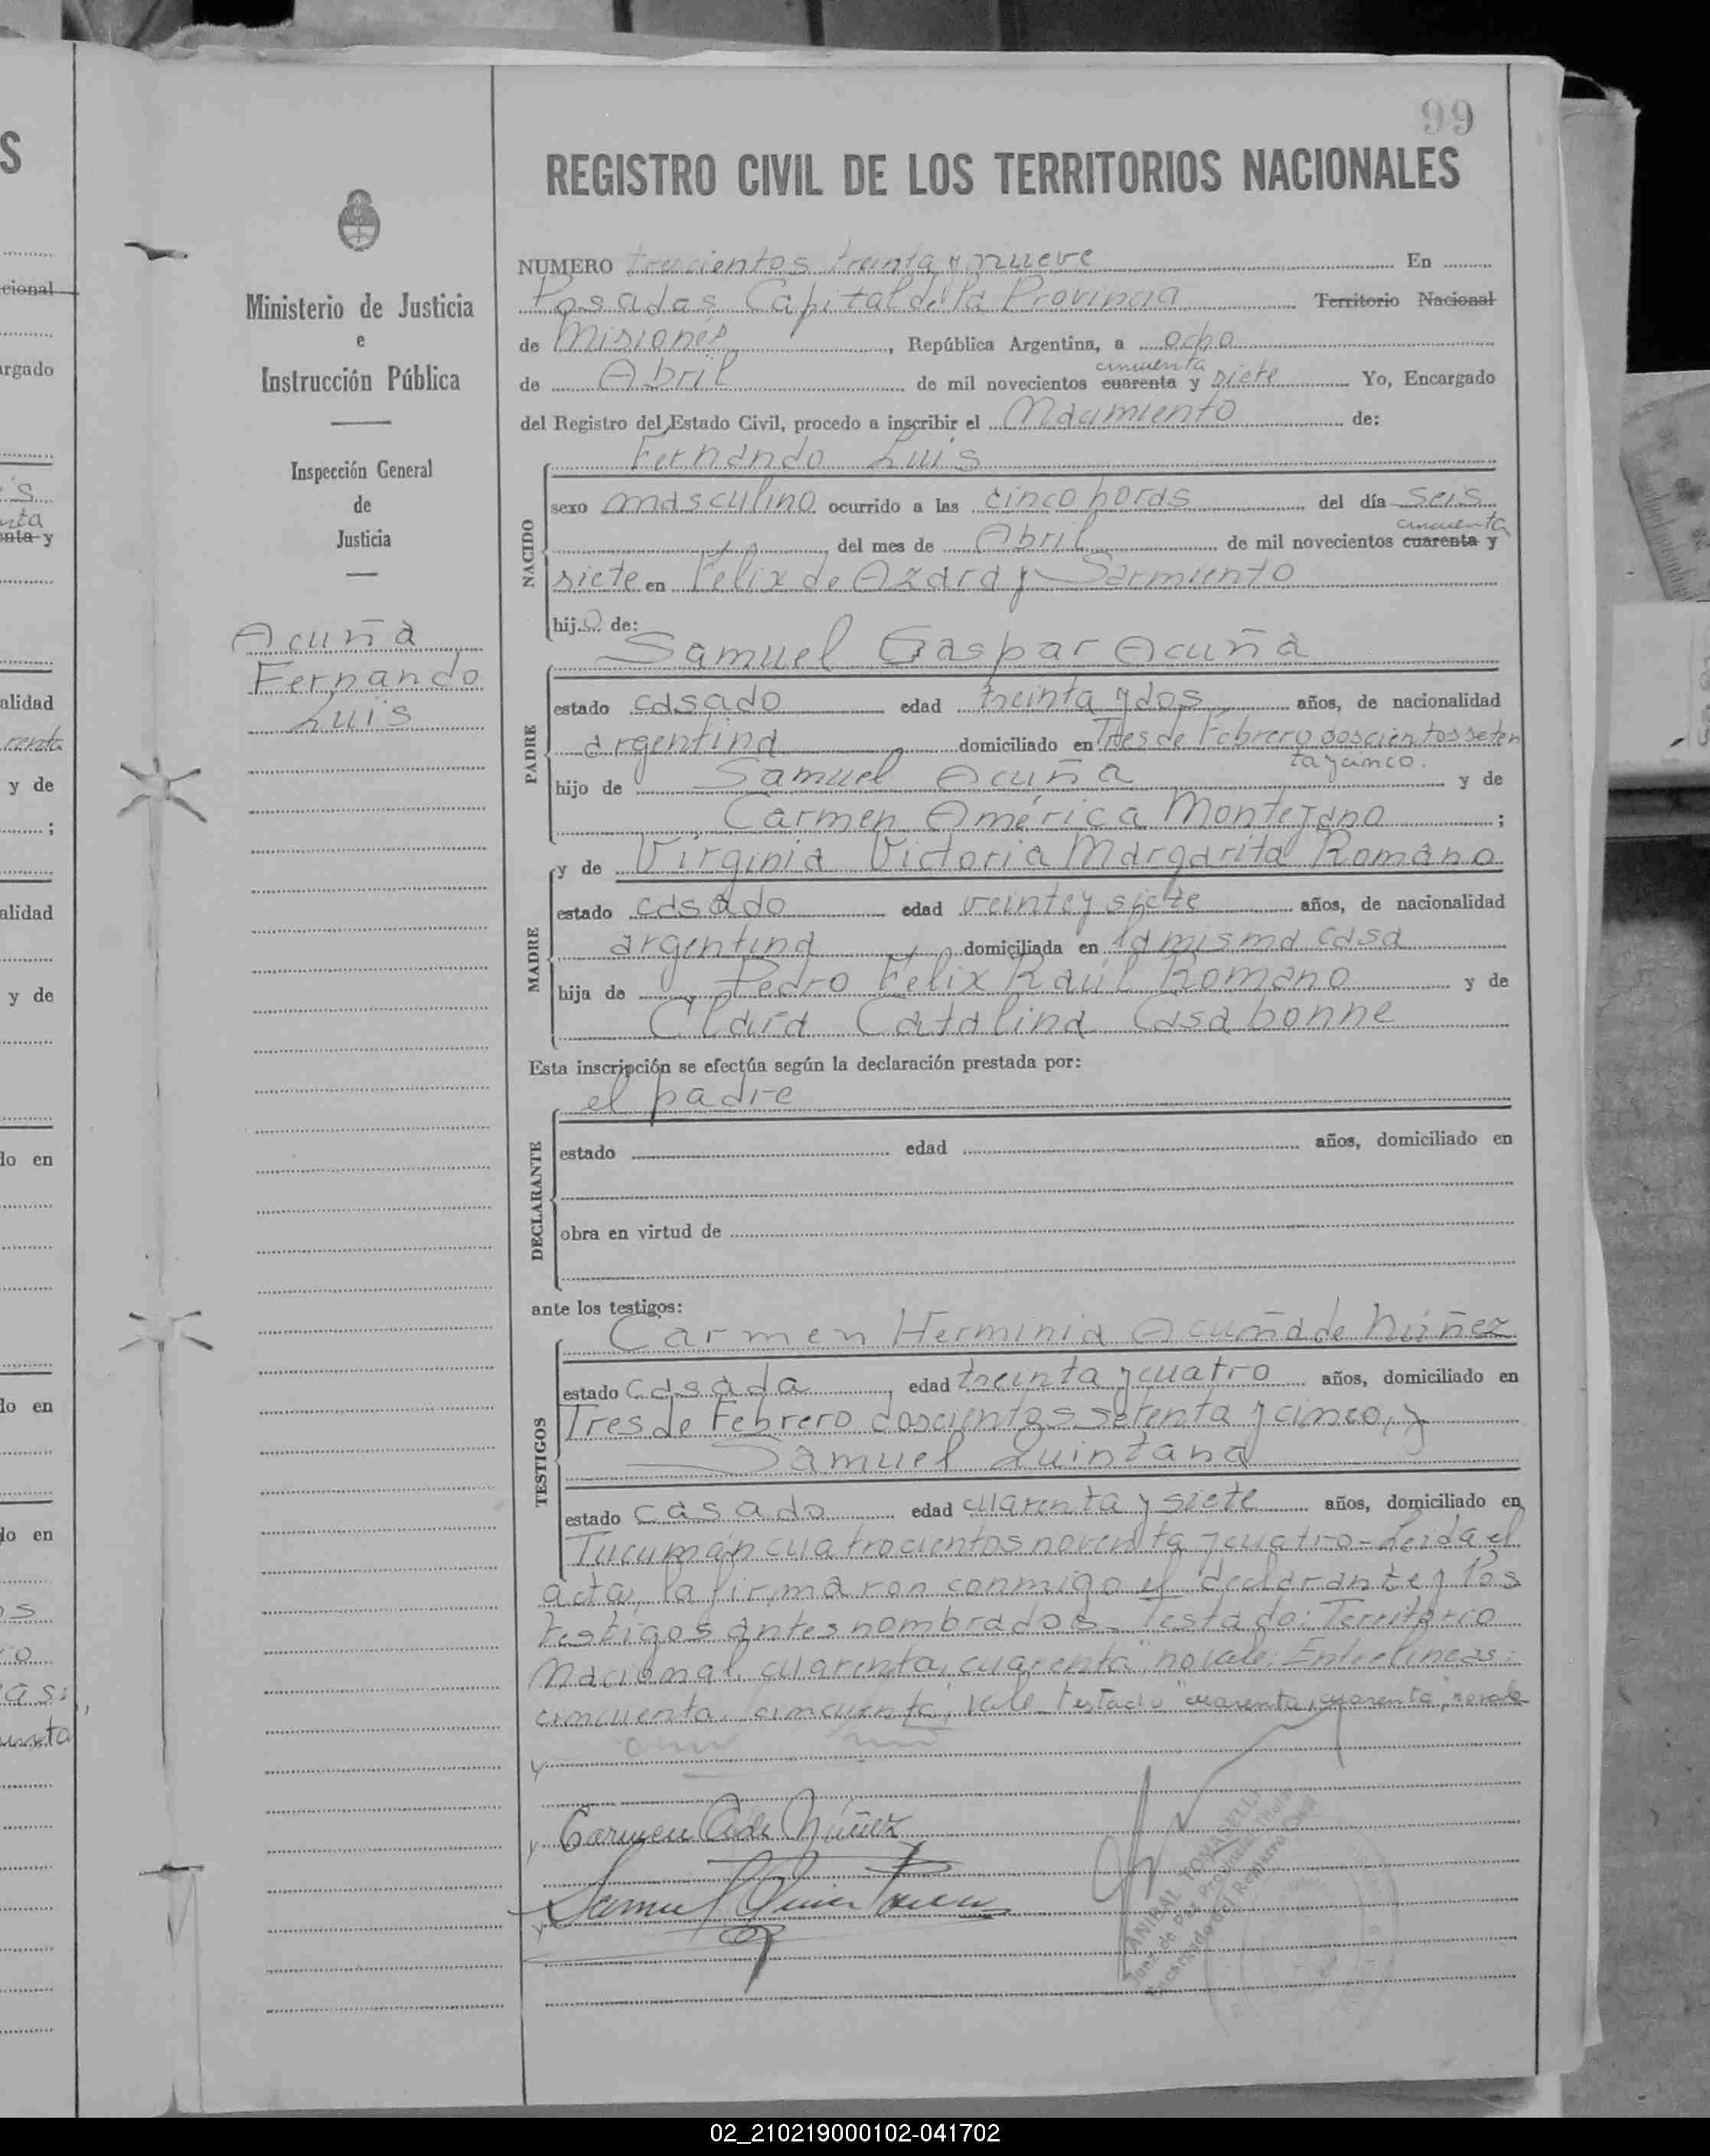 99
REGISTRO CIVIL DE LOS TERRITORIOS NACIONALES
Ministerio de Justicia
e
Instrucción Pública
Inspección General
de
Justicia
Acuña
Fernando
Luis
NUMERO trescientos treinta y nueve En
Posadas Capital de la Provincia Territorio Nacional
de Misiones, República Argentina, a ocho
cincuenta
de Abril de mil novecientos cuarenta y siete Yo, Encargado
del Registro del Estado Civil, procedo a inscribir el Nacimiento de:
Fernando Luis
NACIDO
sexo masculino ocurrido a las cinco horas del día seis
cincuenta
del mes de Abril de mil novecientos cuarenta y
siete en Félix de Azara y Sarmiento
hijo de:
Samuel Gaspar Acuña
PADRE
estado casado edad treinta y dos años, de nacionalidad
argentina domiciliado en Tres de Febrero doscientos seten
ta y cinco.
hijo de Samuel Acuña y de
Carmen América Montejano ;
y de Virginia Victoria Margarita Romano
MADRE
estado casado edad veinte y siete años, de nacionalidad
argentina domiciliada en la misma casa
hija de Pedro Félix Raúl Romano y de
Clara Catalina Casabonne
Esta inscripción se efectúa según la declaración prestada por:
el padre
DECLARANTE
estado edad años, domiciliado en
obra en virtud de
ante los testigos:
Carmen Herminia Acuña de Núñez
TESTIGOS
estado casada, edad treinta y cuatro años, domiciliado en
Tres de Febrero doscientos setenta y cinco, y
Samuel Quintana
estado casado edad cuarenta y siete años, domiciliado en
Tucumán cuatrocientos noventa y cuatro - Leida el
acta, la firmaron conmigo el declarante y los
testigos antes nombrados. Testado: Territorio
Nacional, cuarenta, cuarenta", no vale: Entrelineas:
cincuenta, cincuenta, vale testado "cuarenta, cuarenta", no vale
Carmen A de Núñez
Samuel Quintana
ANIBAL TOMASELLI
Juez de Paz Pro
Encargado del Registro Civil
02_210219000102-041702